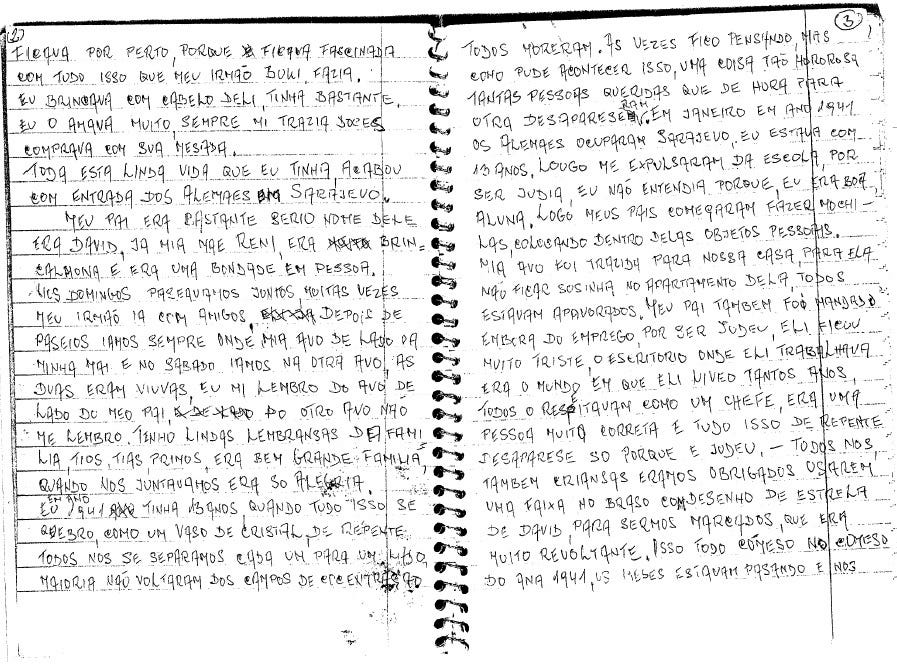 2)
FICAVA POR PERTO, PORQUE FICAVA FASCINADA
COM TUDO ISSO QUE MEU IRMÃO BUKI, FAZIA.
EU BRINCAVA COM CABELO DELI, TINHA BASTANTE,
EU O AMAVA MUITO, SEMPRE MI TRAZIA DOCES
COMPRAVA COM SUA MESADA.
TODA ESTA LINDA VIDA QUE EU TINHA ACABOU
COM ENTRADA DOS ALEMAES EM SARAJEVO.
MEU PAI ERA BASTANTE SERIO NOME DELE
ERA DAVID, JA MIA MAE RENI, ERA BRIN-
CALHONA E ERA UMA BONDADE EM PESSOA.
NOS DOMINGOS PASEAVAMOS JUNTOS, MUITAS VEZES
MEU IRMÃO IA COM AMIGOS, DEPOIS DE
PASEIOS IAMOS SEMPRE ONDE MIA AVO DE LADO DA
MINHA MAI E NO SABADO IAMOS NA OTRA AVO, AS
DUAS ERAM VIUVAS, EU MI LEMBRO DO AVO DE
LADO DO MEO PAI, DO OTRO AVO NÃO
ME LEMBRO. TENHO LINDAS LEMBRANSAS DE FAMI
LIA, TIOS, TIAS, PRIMOS, ERA BEM GRANDE FAMILIA,
QUANDO NOS JUNTAVAMOS ERA SO ALEGRIA.
EM ANO
EU 1941 TINHA 13 ANOS QUANDO TUDO ISSO SE
QUEBRO, COMO UM VASO DE CRISTAL, DE REPENTE
TODOS NOS SE SEPARAMOS CADA UM PARA UM LADO,
MAIORIA NÃO VOLTARAM DOS CAMPOS DE
3
TODOS MORERAM. ÀS VEZES FICO PENSANDO, MAS
COMO PUDE ACONTECER ISSO, UMA COISA TÃO HOROROSA
TANTAS PESSOAS QUERIDAS QUE DE HORA PARA
OTRA DESAPARESERAM. EM JANEIRO EM ANO 1941
OS ALEMAES OCUPARAM SARAJEVO, EU ESTAVA COM
13 ANOS, LOUGO ME EXPULSARAM DA ESCOLA, POR
SER JUDIA, EU NÃO ENTENDIA PORQUE, EU ERA BOA
ALUNA. LOGO MEUS PAIS COMEÇARAM FAZER MOCHI-
LAS, COLOCANDO DENTRO DELAS OBJETOS PESSOAIS.
MIA AVO FUI TRAZIDA PARA NOSSA CASA, PARA ELA
NÃO FICAR SOSINHA NO APARTAMENTO DELA, TODOS
ESTAVAM APAVORADOS. MEU PAI TAMBEM FOO MANDADO
EMBORA DO EMPREGO, POR SER JUDEU, ELI FICOU
MUITO TRISTE, O ESCRITORIO ONDE ELI TRABALHAVA
ERA O MUNDO EM QUE ELI VIVEO TANTOS ANOS,
TODOS O RESPEITAVAM COMO UM CHEFE, ERA UMA
PESSOA MUITO CORRETA E TUDO ISSO DE REPENTE
DESAPARESE SO PORQUE E JUDEU. – TODOS NOS,
TAMBEM CRIANSAS ERAMOS OBRIGADOS USAREM
UMA FAIXA NO BRASO COM DESENHO DE ESTRELA
DE DAVID, PARA SERMOS MARCADOS, QUE ERA
MUITO REVOLTANTE. ISSO TODO COMESO NO COMESO
DO ANA 1941, US MESES ESTAVAM PASANDO E NOS